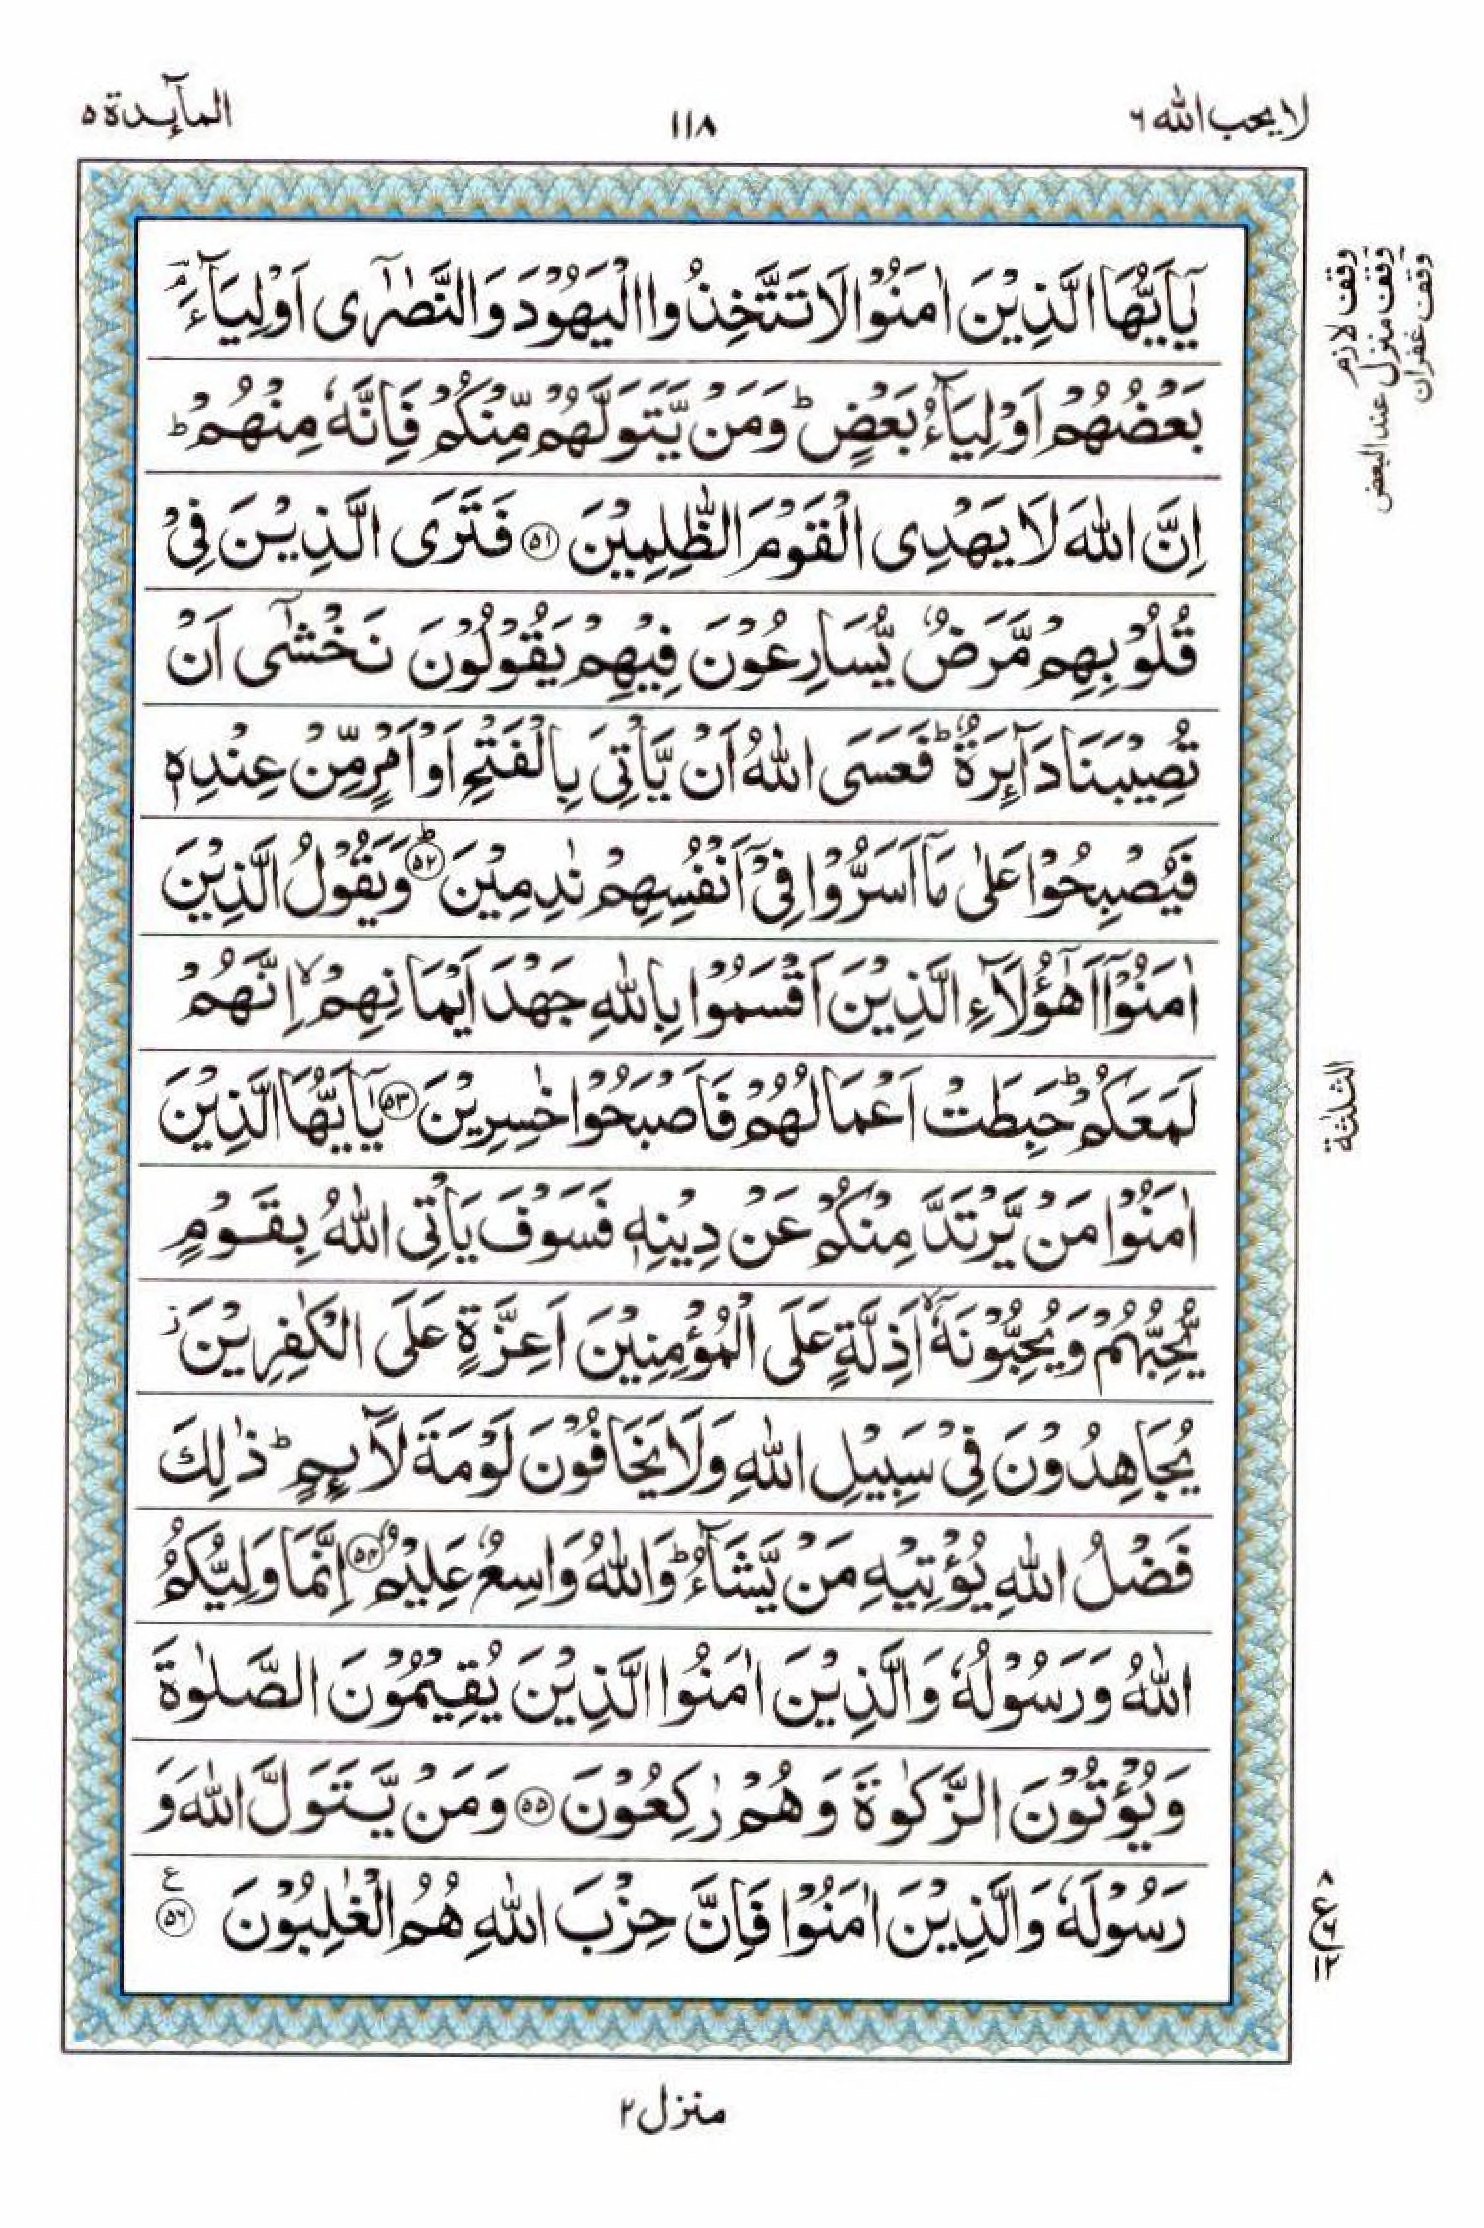 المآئدة ٥
١١٨
لا يحب الله ٦
يٰۤاَيُّهَا الَّذِيْنَ اٰمَنُوْا لَا تَتَّخِذُوا الْيَهُوْدَ وَالنَّصٰرٰۤى اَوْلِيَآءَ ۘ
بَعْضُهُمْ اَوْلِيَآءُ بَعْضٍ ؕ وَمَنْ يَّتَوَلَّهُمْ مِّنْكُمْ فَاِنَّهٗ مِنْهُمْ ؕ
اِنَّ اللّٰهَ لَا يَهْدِى الْقَوْمَ الظّٰلِمِيْنَ ﴿٥١﴾ فَتَرَى الَّذِيْنَ فِىْ
قُلُوْبِهِمْ مَّرَضٌ يُّسَارِعُوْنَ فِيْهِمْ يَقُوْلُوْنَ نَخْشٰٓى اَنْ
تُصِيْبَنَا دَآئِرَةٌ ؕ فَعَسَى اللّٰهُ اَنْ يَّاْتِىَ بِالْفَتْحِ اَوْ اَمْرٍ مِّنْ عِنْدِهٖ
فَيُصْبِحُوْا عَلٰى مَاۤ اَسَرُّوْا فِىْۤ اَنْفُسِهِمْ نٰدِمِيْنَ ﴿٥٢﴾ؕ وَيَقُوْلُ الَّذِيْنَ
اٰمَنُوْۤا اَهٰۤؤُلَآءِ الَّذِيْنَ اَقْسَمُوْا بِاللّٰهِ جَهْدَ اَيْمَانِهِمْ ۙ اِنَّهُمْ
لَمَعَكُمْ ؕ حَبِطَتْ اَعْمَالُهُمْ فَاَصْبَحُوْا خٰسِرِيْنَ ﴿٥٣﴾ يٰۤاَيُّهَا الَّذِيْنَ
اٰمَنُوْا مَنْ يَّرْتَدَّ مِنْكُمْ عَنْ دِيْنِهٖ فَسَوْفَ يَاْتِى اللّٰهُ بِقَوْمٍ
يُّحِبُّهُمْ وَيُحِبُّوْنَهٗۤ ۙ اَذِلَّةٍ عَلَى الْمُؤْمِنِيْنَ اَعِزَّةٍ عَلَى الْكٰفِرِيْنَ ز
يُجَاهِدُوْنَ فِىْ سَبِيْلِ اللّٰهِ وَلَا يَخَافُوْنَ لَوْمَةَ لَآئِمٍ ؕ ذٰلِكَ
فَضْلُ اللّٰهِ يُؤْتِيْهِ مَنْ يَّشَآءُ ؕ وَاللّٰهُ وَاسِعٌ عَلِيْمٌ ﴿٥٤﴾ اِنَّمَا وَلِيُّكُمُ
اللّٰهُ وَرَسُوْلُهٗ وَالَّذِيْنَ اٰمَنُوا الَّذِيْنَ يُقِيْمُوْنَ الصَّلٰوةَ
وَيُؤْتُوْنَ الزَّكٰوةَ وَهُمْ رٰكِعُوْنَ ﴿٥٥﴾ وَمَنْ يَّتَوَلَّ اللّٰهَ وَ
رَسُوْلَهٗ وَالَّذِيْنَ اٰمَنُوْا فَاِنَّ حِزْبَ اللّٰهِ هُمُ الْغٰلِبُوْنَ ﴿٥٦﴾ ع
وقف لازم
وقف منزل عند البعض
وقف غفران
الثلثة
٨
ع
٦
١٢
منزل ٢